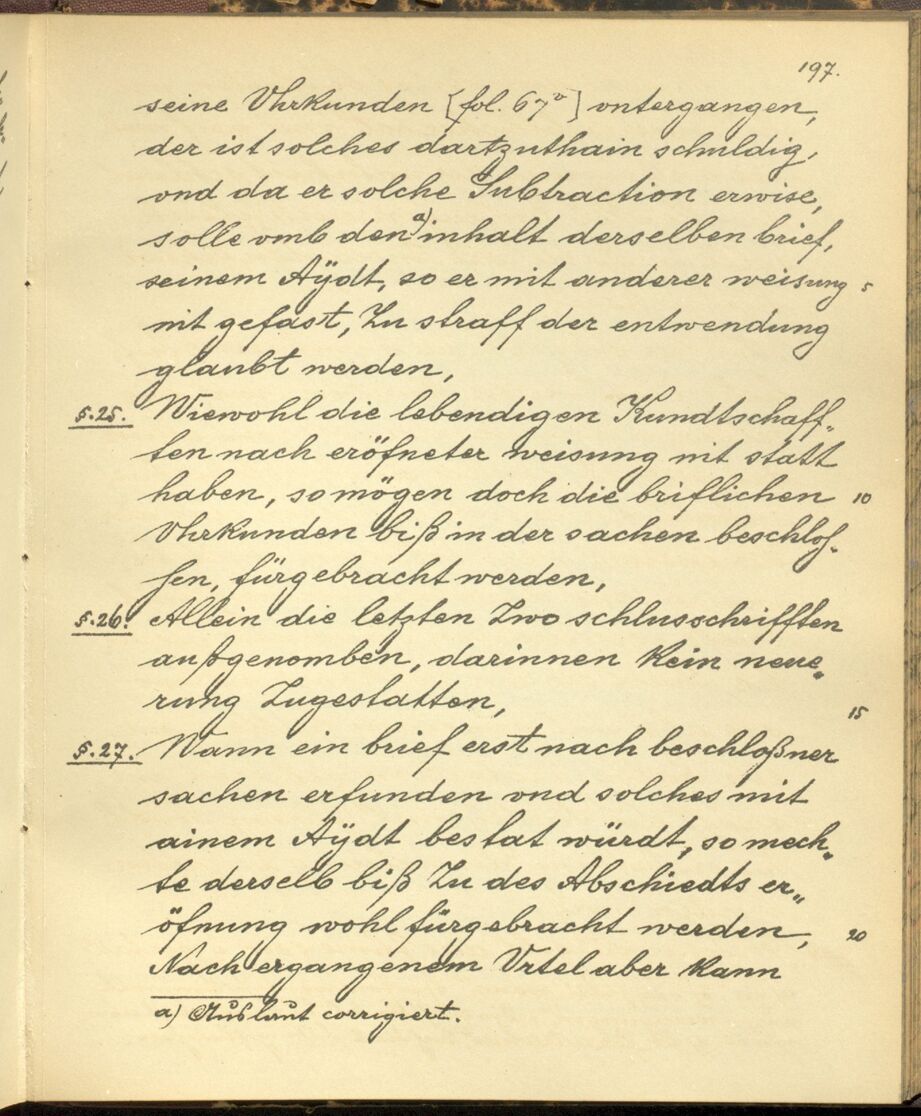 197.
seine Vhrkunden [fol. 67v] vntergangen,
der ist solches dartzuthain schuldig,
vnd da er solche Subtraction erwise,
solle vmb den a) inhalt derselben brief,
seinem Aÿdt, so er mit anderer weisung 5
nit gefast, Zu straff der entwendung
glaubt werden,
§.25. Wiewohl die lebendigen Kundtschaff„
ten nach eröfneter weisung nit statt
haben, so mögen doch die briflichen 10
Vhrkunden biß in der sachen beschlos„
sen, fürgebracht werden,
§.26. Allein die letzten Zwo schlusschrifften
außgenomben, darinnen kein neue„
rung Zugestatten, 15
§.27. Wann ein brief erst nach beschloßner
sachen erfunden vnd solches mit
ainem Aÿdt bestat würdt, so mech„
te derselb biß Zu des Abschiedts er„
öfnung wohl fürgebracht werden, 20
Nach ergangenem Vrtel aber kann
a) Auslaut corrigiert.